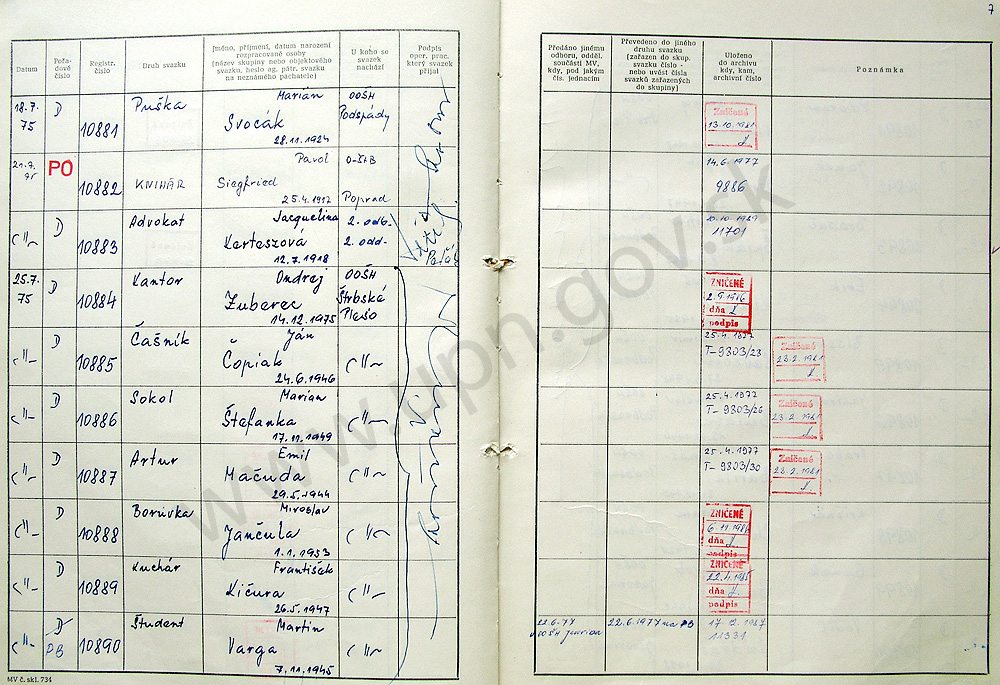 7
Datum
Pořa-
dové
číslo
Registr.
číslo
Druh svazku
Jméno, příjmení, datum narození
rozpracované osoby
(název skupiny nebo objektového
svazku, heslo ag. pátr. svazku
na neznámého pachatele)
U koho se
svazek
nachází
Podpis
oper. prac.
který svazek
přijal
Předáno jinému
odboru, odděl.
součásti MV,
kdy, pod jakým
čís. jednacím
Převedeno do jiného
druhu svazku
(zařazen do skup.
svazku číslo -
nebo uvést čísla
svazků zařazených
do skupiny)
Uloženo
do archivu
kdy, kam,
archivní číslo
Poznámka
18.7.
75
D
10881
Puška
Marian
Svocák
28.11.1924
OOŠH
Podspády
Zničené
13.10.1981
21.7.
PO
10882
KNIHÁR
Pavol
Siegfried
25.4.1912
O-ŠtB
Poprad
14.6.1977
9886
-"-
D
10883
Advokat
Jacquelina
Kerteszová
12.7.1918
2. odb.
2. odd.
10.10.1989
11701
25.7.
75
D
10884
Kantor
Ondrej
Zuberec
14.12.1975
OOŠH
Štrbské
Pleso
ZNIČENÉ
2.9.1986
dňa
podpis
-"-
D
10885
Čašník
Ján
Čopiak
24.6.1946
-"-
25.4.1977
T-9803/28
Zničené
23.2.1981
-"-
D
10886
Sokol
Marian
Štefanka
17.11.1949
-"-
25.4.1977
T-9803/26
Zničené
23.2.1981
-"-
D
10887
Artur
Emil
Mačuda
29.5.1944
-"-
25.4.1977
T-9803/30
Zničené
23.2.1981
-"-
D
10888
Borúvka
Miroslav
Jančula
1.1.1953
-"-
ZNIČENÉ
6.11.1986
dňa
podpis
-"-
D
10889
Kuchár
František
Kičura
26.5.1947
-"-
ZNIČENÉ
dňa
podpis
-"-
D
PB
10890
Študent
Martin
Varga
7.11.1945
-"-
22.6.77
22.6.1977 na PB
17.12.1987
11331
MV č. skl. 734
www.upn.gov.sk